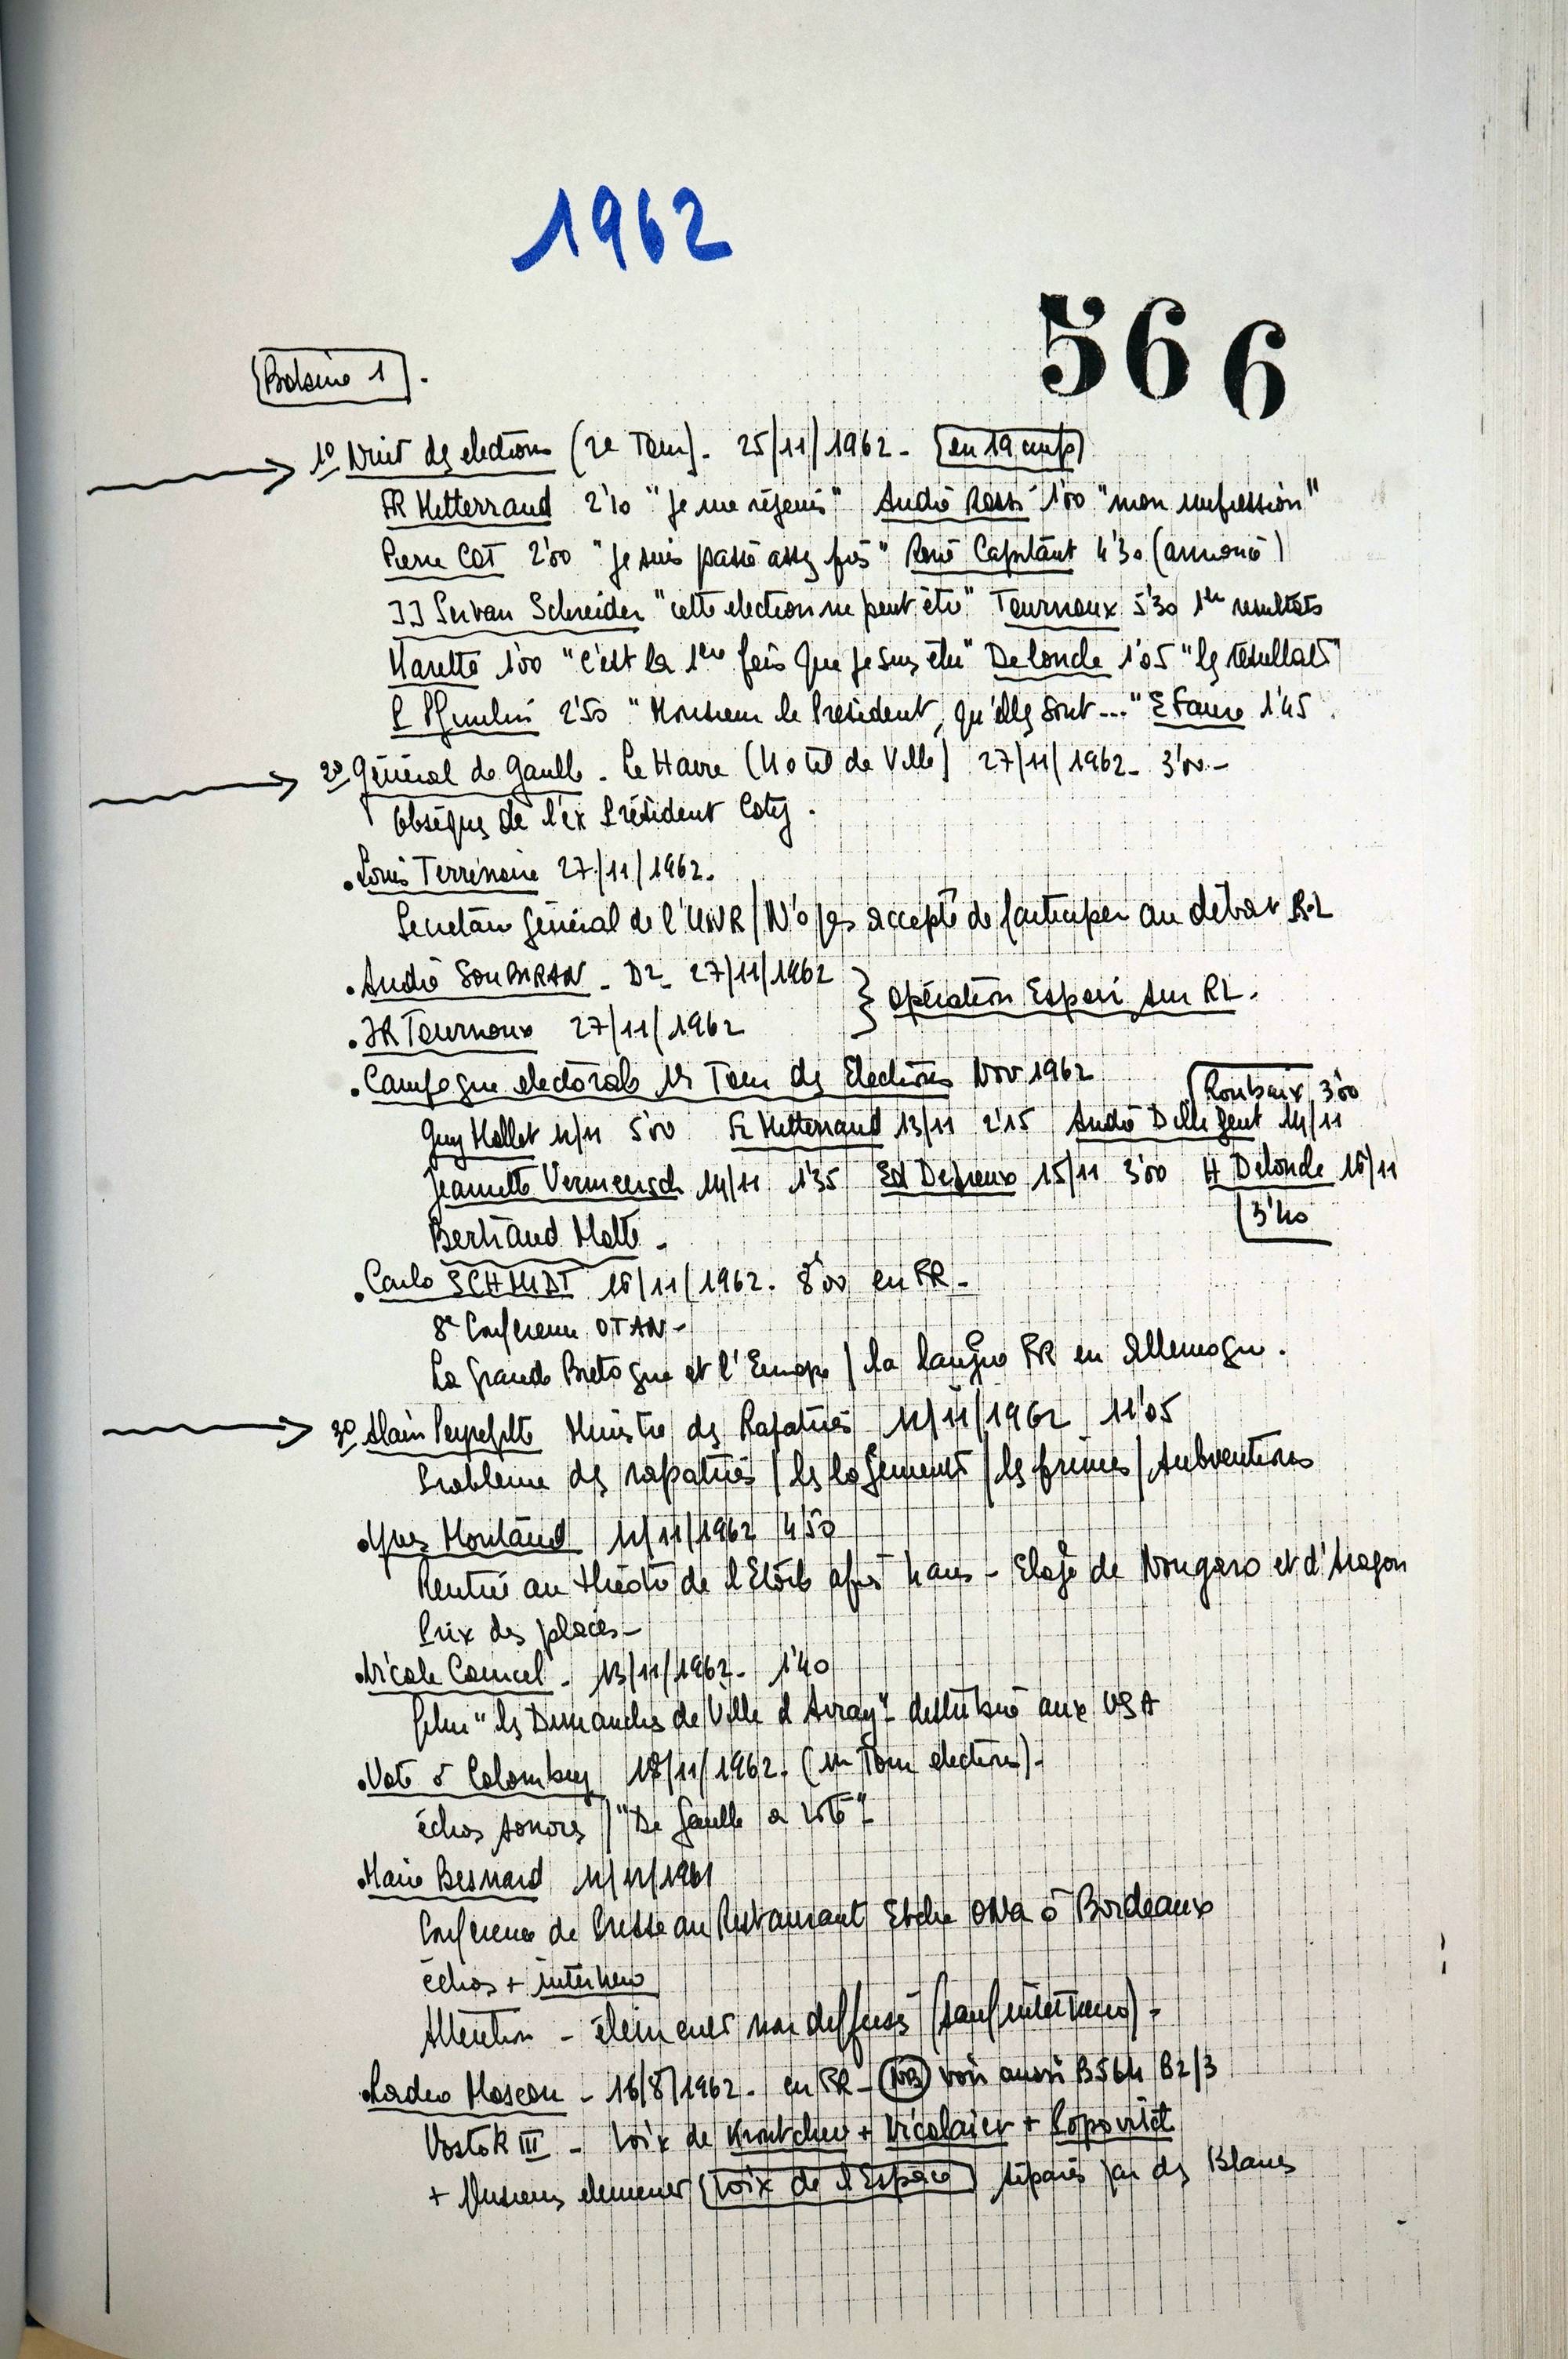 1962
566
Bobine 1.
1º Nuit des elections (2e Tour). 25/11/1962. en 19 cm/s
FR Mitterrand 2'10 "Je me réjouis" André Rossi 1'00 "mon impression"
Pierre Cot 2'00 "Je suis passé assez près" René Capitant 4'30 (annoncé)
JJ Servan Schreiber "cette election ne peut être" Tournoux 5'30 1er resultats
Marette 1'00 "C'est la 1ère fois que je suis élu" Delonde 1'05 "les résultats"
P Pflimlin 2'50 "Monsieur le Président, qu'elles sont..." E Faure 1'45.
2º Général de Gaulle - Le Havre (Hotel de Ville) 27/11/1962 - 3'00 -
Obsèques de l'ex Président Coty.
.Louis Terrenoire 27/11/1962.
Secrétaire Général de l'UNR / N'a pas accepté de participer au débat RL
.André SOUBIRAN - D2 - 27/11/1962
Opération Espoir sur RL.
.JR Tournoux 27/11/1962
.Campagne electorale 1er Tour des Elections Nov 1962
Roubaix 3'00
Guy Mollet 12/11 5'00 Fr Mitterrand 13/11 2'15 André Diligent 14/11
Jeannette Vermeersch 14/11 1'35 Ed Depreux 15/11 3'00 H Delonde 16/11
3'40
Bertrand Motte.
.Carlo SCHMIDT 16/11/1962. 8'00 en FR -
8e Conférence OTAN -
La Grande Bretagne et l'Europe / la langue FR en Allemagne.
3º Alain Peyrefitte Ministre des Rapatriés 12/11/1962 11'05
Problème des rapatriés / les logements / les primes / subventions
.Yves Montand 12/11/1962 4'50
Rentrée au théâtre de l'Etoile après 4 ans - Eloge de Nougaro et d'Aragon
Prix des places -
.Nicole Courcel - 13/11/1962 - 1'40
film "les Dimanches de Ville d'Avray" distribué aux USA
.Vote à Colombey 18/11/1962. (1er Tour elections).
échos sonores / "De Gaulle a voté"
.Marie Besnard 12/12/1961
Conférence de Presse au Restaurant Etche ONa à Bordeaux
échos + interview
Attention - élements non diffusés (sauf interview) -
.Radio Moscou - 16/8/1962. en FR - NB voir aussi B564 B2/3
Vostok III - Voix de Kroutchev + Nicolaiev + Popovitch
+ Plusieurs elements Voix de l'Espace séparés par des Blancs